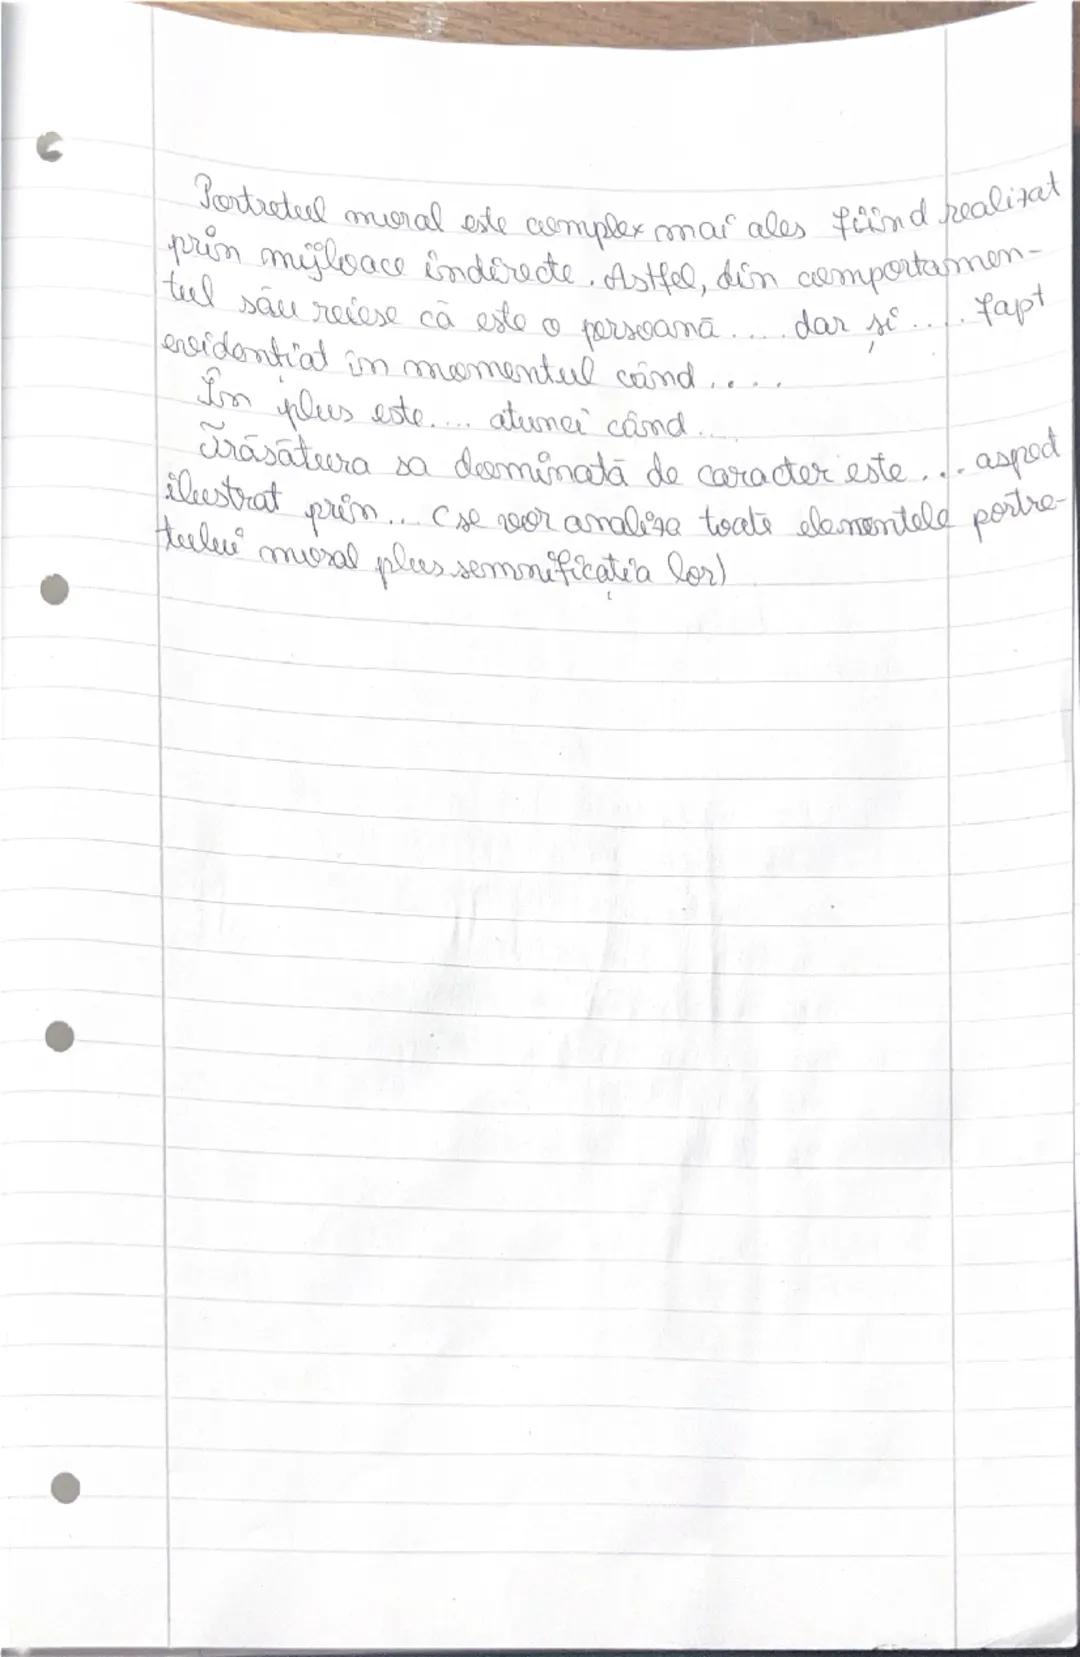 Portretul moral este complex mai ales fiind realizat
prin mijloace indirecte. Astfel, din comportamen-
tul său reiese că este o persoană .... dar și .... fapt
evidențiat în momentul când ....
În plus este.... atunci când ....
Trăsătura sa dominată de caracter este ... aspect
ilustrat prin... (se vor analiza toate elementele portre-
tului moral plus semnificația lor)